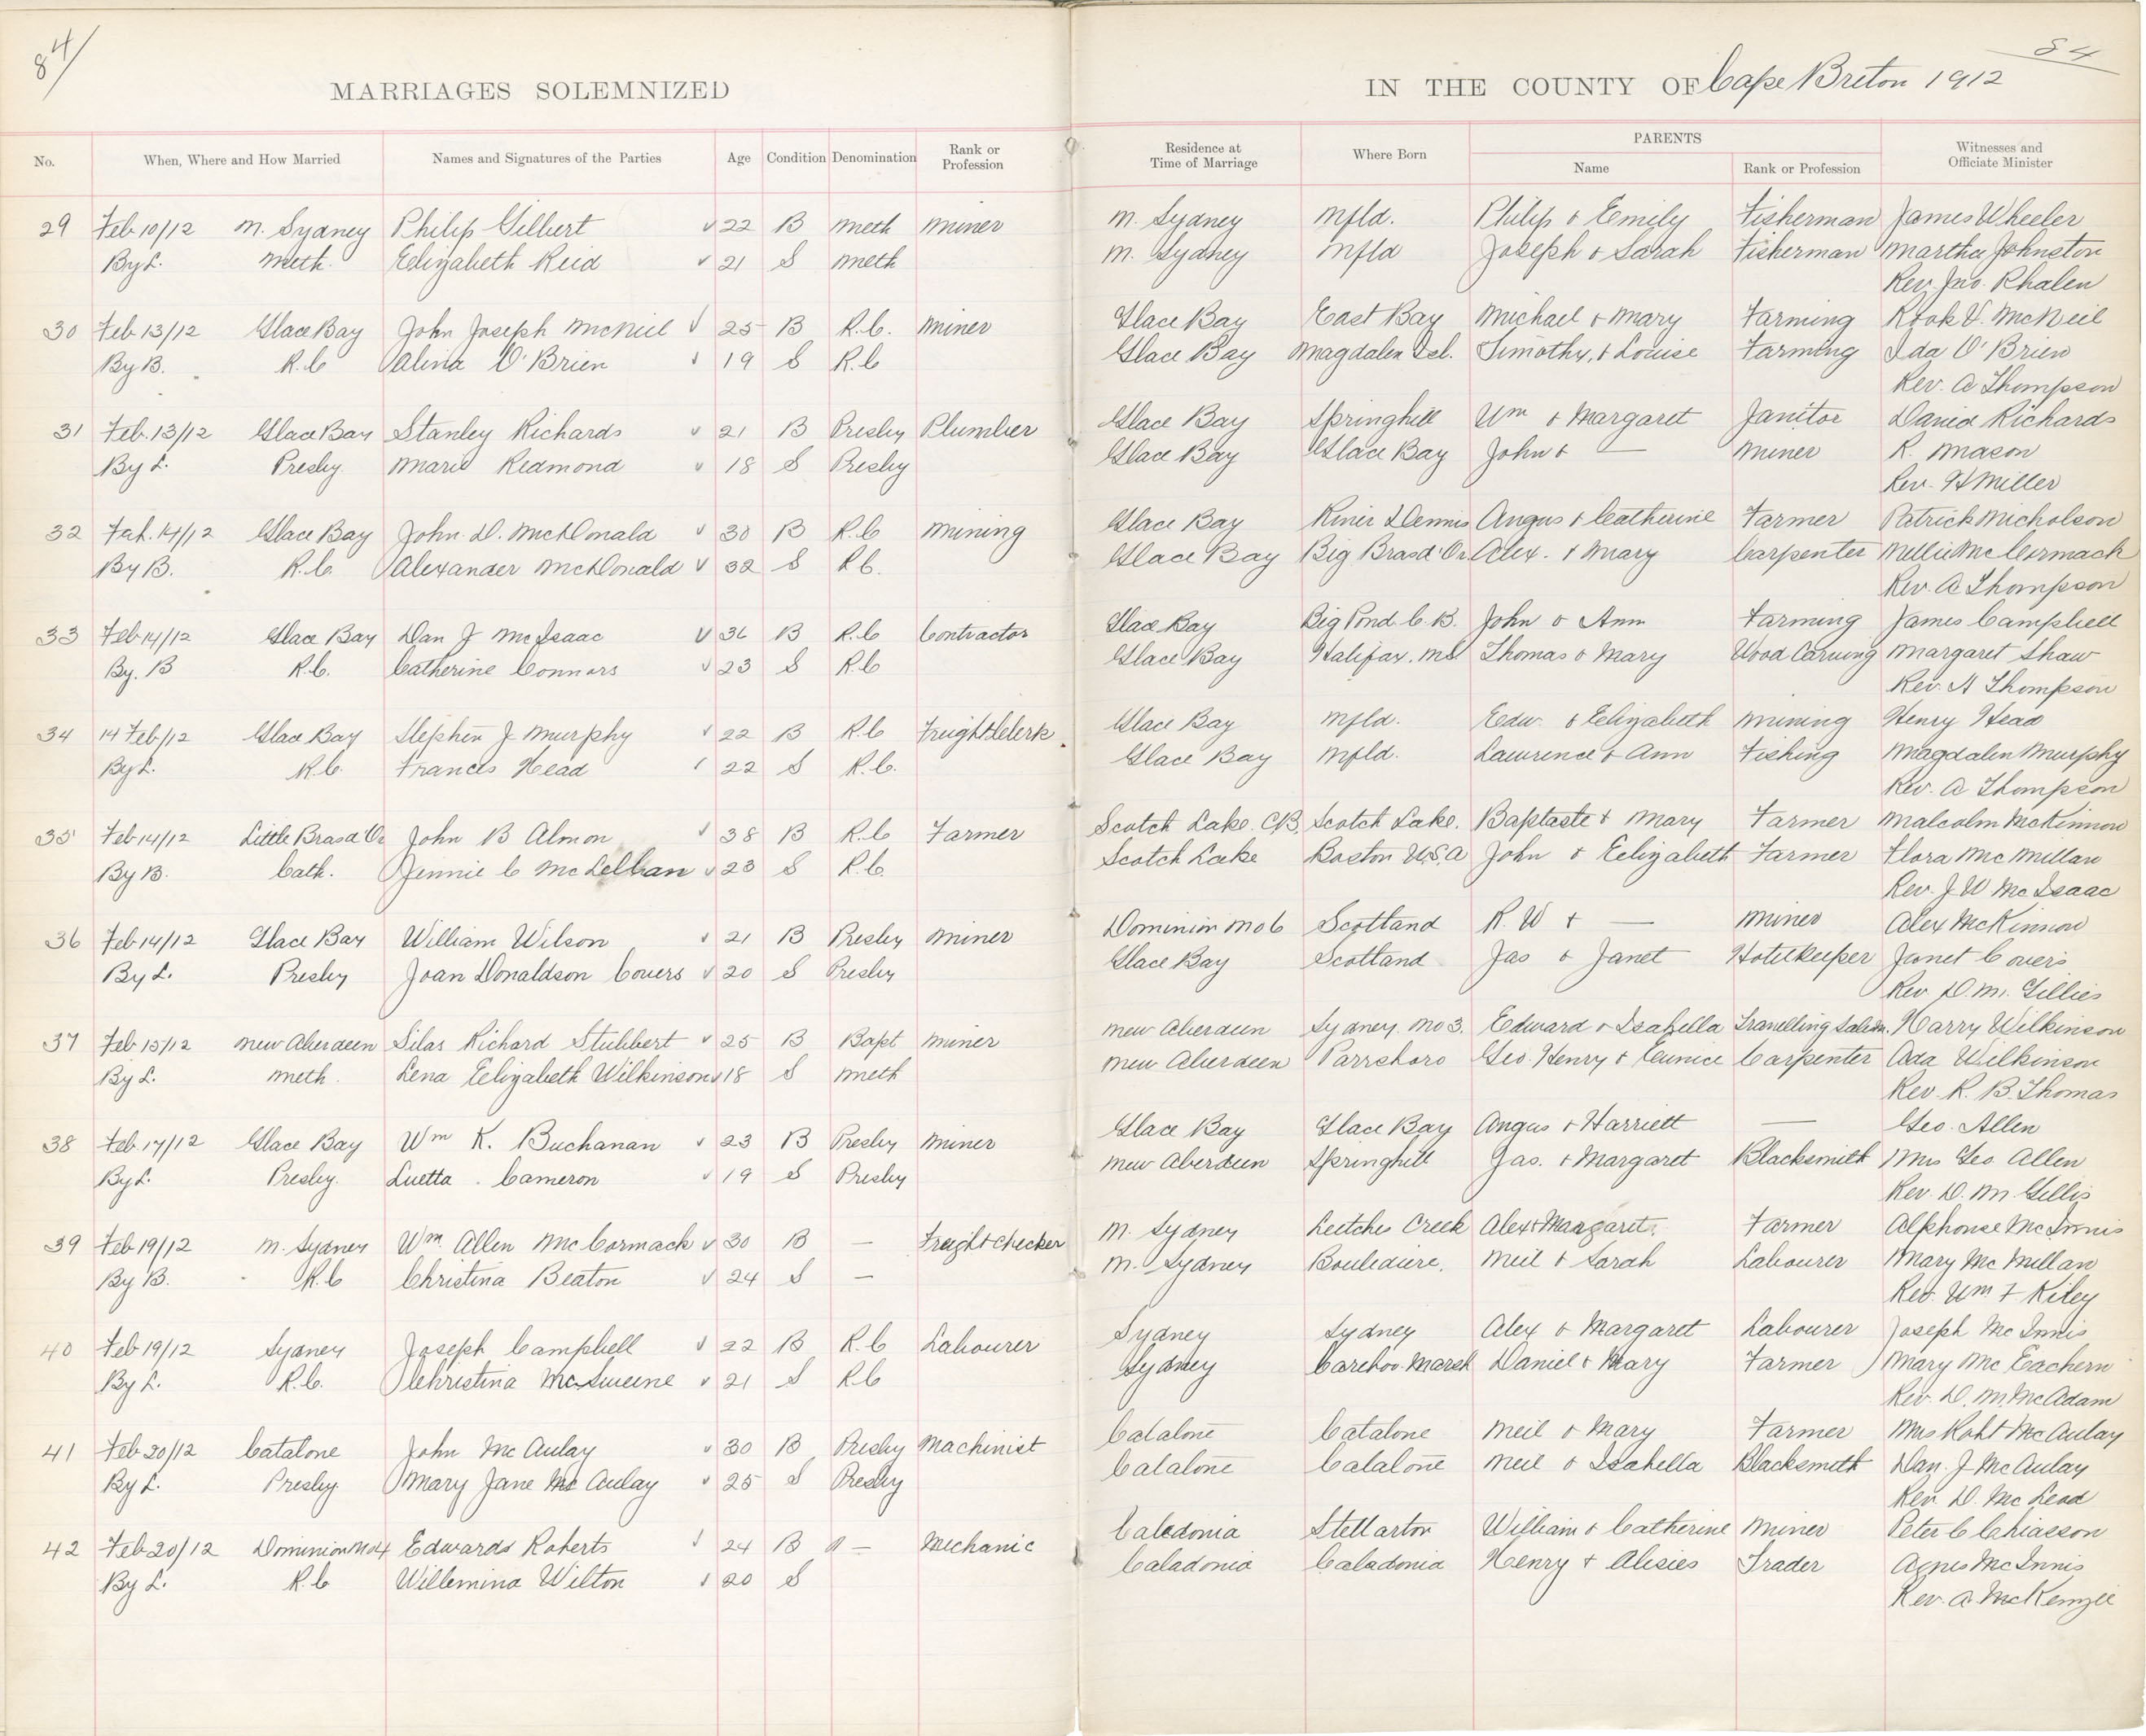 84
84
MARRIAGES SOLEMNIZED IN THE COUNTY OF Cape Breton 1912
No. When, Where and How Married Names and Signatures of the Parties Age Condition Denomination Rank or Profession Residence at Time of Marriage Where Born PARENTS Name Rank or Profession Witnesses and Officiate Minister
29 Feb 10/12 N. Sydney Philip Gilbert 22 B Meth Miner N. Sydney Nfld. Philip & Emily Fisherman James Wheeler
By L. Meth. Elizabeth Reid 21 S Meth N. Sydney Nfld Joseph & Sarah Fisherman Martha Johnston
Rev. Jno. Phalen
30 Feb 13/12 Glace Bay John Joseph McNiel 25 B R.C. Miner Glace Bay East Bay Michael & Mary Farming V. McNeil
By B. R.C Alina O'Brien 19 S R.C Glace Bay Magdalen Isl. Timothy, & Louise Farming Ida O'Brien
Rev. A Thompson
31 Feb. 13/12 Glace Bay Stanley Richards 21 B Presby Plumber Glace Bay Springhill Wm & Margaret Janitor David Richards
By L. Presby. Marie Redmond 18 S Presby Glace Bay Glace Bay John & — Miner R. Mason
Rev. H Miller
32 Feb. 14/12 Glace Bay John D. McDonald 30 B R.C Mining Glace Bay River Dennis Angus & Catherine Farmer Patrick Nicholson
By B. R.C. Alexander McDonald 32 S R C. Glace Bay Big Bras d'Or Alex. & Mary Carpenter Millie McCormack
Rev. A Thompson
33 Feb 14/12 Glace Bay Dan J McIsaac 36 B R.C Contractor Glace Bay Big Pond C.B. John & Ann Farming James Campbell
By. B R.C. Catherine Connors 23 S R.C Glace Bay Halifax. N.S. Thomas & Mary Wood Carving Margaret Shaw
Rev. A Thompson
34 14 Feb/12 Glace Bay Stephen J Murphy 22 B R.C Freight Clerk Glace Bay Nfld. Edw. & Elizabeth Mining Henry Head
By L. R.C. Frances Head 22 S R.C. Glace Bay Nfld. Lawrence & Ann Fishing Magdalen Murphy
Rev. A Thompson
35 Feb 14/12 Little Bras d'Or John B Almon 38 B R.C Farmer Scotch Lake. C.B. Scotch Lake. Baptaste & Mary Farmer Malcolm McKinnon
By B. Cath. Jennie C McLellan 23 S R.C. Scotch Lake Boston U.S.A John & Elizabeth Farmer Flora McMillan
Rev. J W McIsaac
36 Feb 14/12 Glace Bay William Wilson 21 B Presby Miner Dominion No 6 Scotland R. W & — Miner Alex McKinnon
By L. Presby Joan Donaldson Covers 20 S Presby Glace Bay Scotland Jas & Janet Hotelkeeper Janet Covers
Rev D. M. Gillies
37 Feb 15/12 New Aberdeen Silas Richard Stubbert 25 B Bapt Miner New Aberdeen Sydney No 3. Edward & Isabella Travelling Salesm. Harry Wilkinson
By L. Meth. Lena Elizabeth Wilkinson 18 S Meth New Aberdeen Parrsboro Geo Henry & Eunice Carpenter Ada Wilkinson
Rev. R. B. Thomas
38 Feb 17/12 Glace Bay Wm K. Buchanan 23 B Presby Miner Glace Bay Glace Bay Angus & Harriett — Geo. Allen
By L. Presby. Luetta. Cameron 19 S Presby New Aberdeen Springhill Jas. & Margaret Blacksmith Mrs Geo Allen
Rev. D. M. Gillis
39 Feb 19/12 N. Sydney Wm. Allen McCormack 30 B — Freight Checker N. Sydney Leitches Creek Alex & Margaret. Farmer Alphonse McInnis
By B. R.C Christina Beaton 24 S — N. Sydney Bouledaire. Neil & Sarah Labourer Mary McMillan
Rev. Wm F Kiley
40 Feb 19/12 Sydney Joseph Campbell 22 B R.C Labourer Sydney Sydney Alex & Margaret Labourer Joseph McInnis
By L. R.C. Christina McSweene 21 S R C Sydney Careboo Marsh Daniel & Mary Farmer Mary McEachern
Rev. D. M. McAdam
41 Feb 20/12 Catalone John McAulay 30 B Presby Machinist Catalone Catalone Neil & Mary Farmer Mrs Robt McAulay
By L. Presby. Mary Jane McAulay 25 S Presby Catalone Catalone Neil & Isabella Blacksmith Dan. J McAulay
Rev. D. McLeod
42 Feb 20/12 Dominion No 4 Edwards Roberts 24 B — Mechanic Caledonia Stellarton William & Catherine Miner Peter C Chiasson
By L. R.C Willemina Wilton 20 S Caladonia Caladonia Henry & Alisies Trader Agnes McInnis
Rev. A. McKenzie